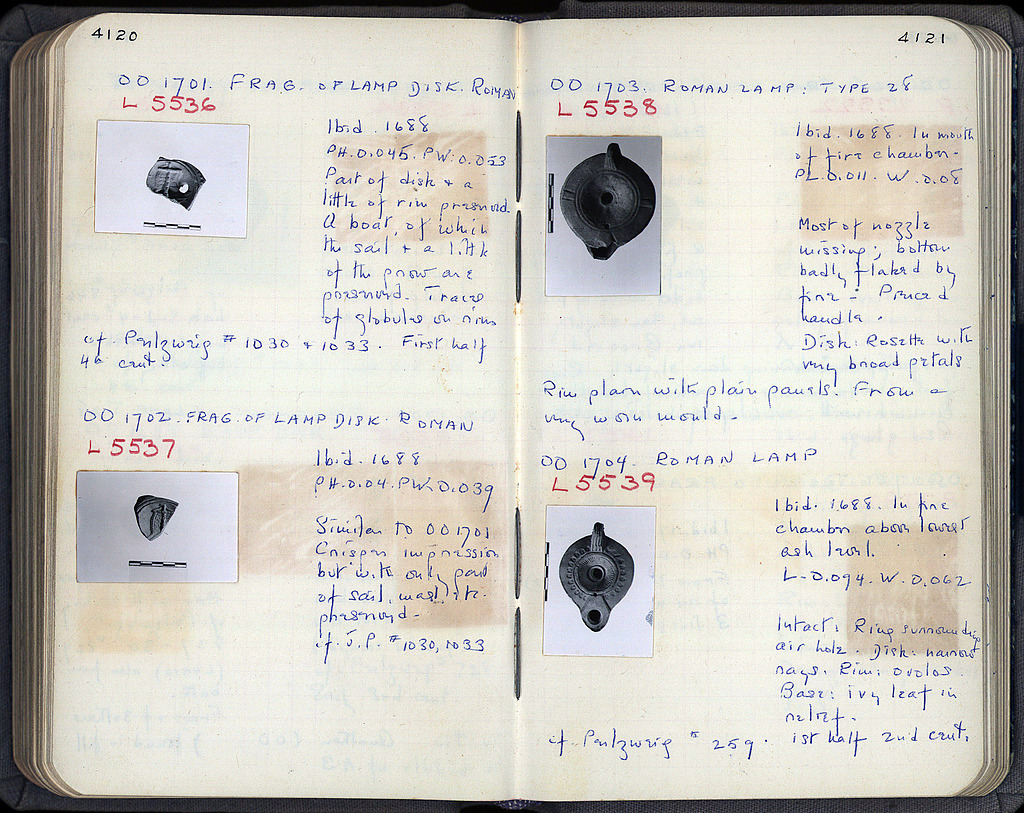 4120
OO 1701. FRAG. OF LAMP DISK. ROMAN
L 5536
Ibid. 1688
PH. 0.045. PW. 0.053
Part of disk + a
little of rim preserved.
A boat, of which
the sail + a little
of the prow are
preserved. Traces
of globules on rim
cf. Perlzweig # 1030 + 1033. First half
4th cent.
OO 1702. FRAG. OF LAMP DISK. ROMAN
L 5537
Ibid. 1688
PH. 0.04. PW. 0.039
Similar to OO 1701
Crisper impression
but with only part
of sail, mast etc.
preserved.
cf. J.P. # 1030, 1033
4121
OO 1703. ROMAN LAMP: TYPE 28
L 5538
Ibid. 1688. In mouth
of fire chamber.
PL. 0.011. W. 0.08
Most of nozzle
missing; bottom
badly flaked by
fire. Pierced
handle.
Disk: Rosette with
very broad petals
Rim plain with plain panels. From a
very worn mould.
OO 1704. ROMAN LAMP
L 5539
Ibid. 1688. In fire
chamber above lowest
ash level.
L. 0.094. W. 0.062
Intact: Ring surrounding
air hole. Disk: narrow
rays. Rim: ovolos.
Base: ivy leaf in
relief.
cf. Perlzweig # 259. 1st half 2nd cent.